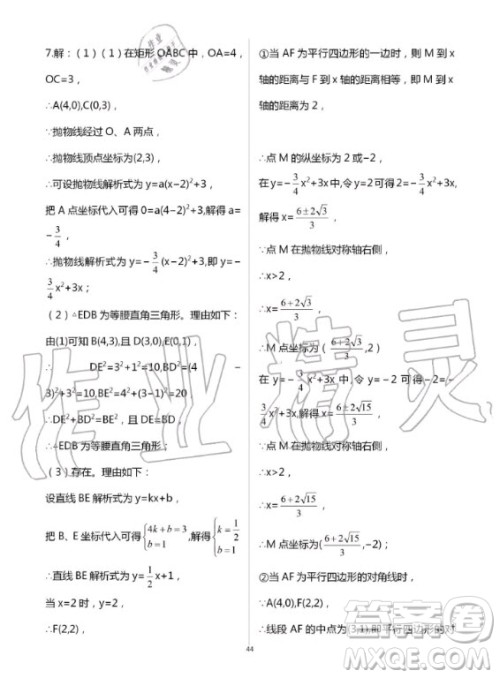 7.解：（1）（1）在矩形 OABC 中，OA=4，
OC=3，
∴A(4,0),C(0,3)，
∵抛物线经过 O、A 两点，
∴抛物线顶点坐标为(2,3)，
∴可设抛物线解析式为 y=a(x−2)²+3，
把 A 点坐标代入可得 0=a(4−2)²+3,解得 a=
−3/4，
∴抛物线解析式为 y=−3/4(x−2)²+3,即 y=−
3/4x²+3x；
（2）△EDB 为等腰直角三角形。理由如下：
由(1)可知 B(4,3),且 D(3,0),E(0,1)，
∴DE²=3²+1²=10,BD²=(4−
3)²+3²=10,BE²=4²+(3−1)²=20，
∴DE²+BD²=BE²,且 DE=BD，
∴△EDB 为等腰直角三角形；
（3）存在。理由如下：
设直线 BE 解析式为 y=kx+b，
把 B、E 坐标代入可得{4k+b=3 b=1,解得{k=1/2 b=1
∴直线 BE 解析式为 y=1/2x+1，
当 x=2 时，y=2，
∴F(2,2)，
①当 AF 为平行四边形的一边时，则 M 到 x
轴的距离与 F 到 x 轴的距离相等，即 M 到 x
轴的距离为 2，
∴点 M 的纵坐标为 2 或−2，
在 y=−3/4x²+3x 中,令 y=2 可得 2=−3/4x²+3x，
解得 x=6±2√3/3，
∵点 M 在抛物线对称轴右侧，
∴x>2，
∴x=6+2√3/3，
∴M 点坐标为(6+2√3/3,2)
在 y=−3/4x²+3x 中,令 y=−2 可得−2=−
3/4x²+3x,解得 x=6±2√15/3，
∵点 M 在抛物线对称轴右侧，
∴x>2，
∴x=6+2√15/3，
∴M 点坐标为(6+2√15/3,−2)
②当 AF 为平行四边形的对角线时，
∵A(4,0),F(2,2)，
∴线段 AF 的中点为(3,1),即平行四边形的对
44
作业精灵
答案圈
MXQE.COM